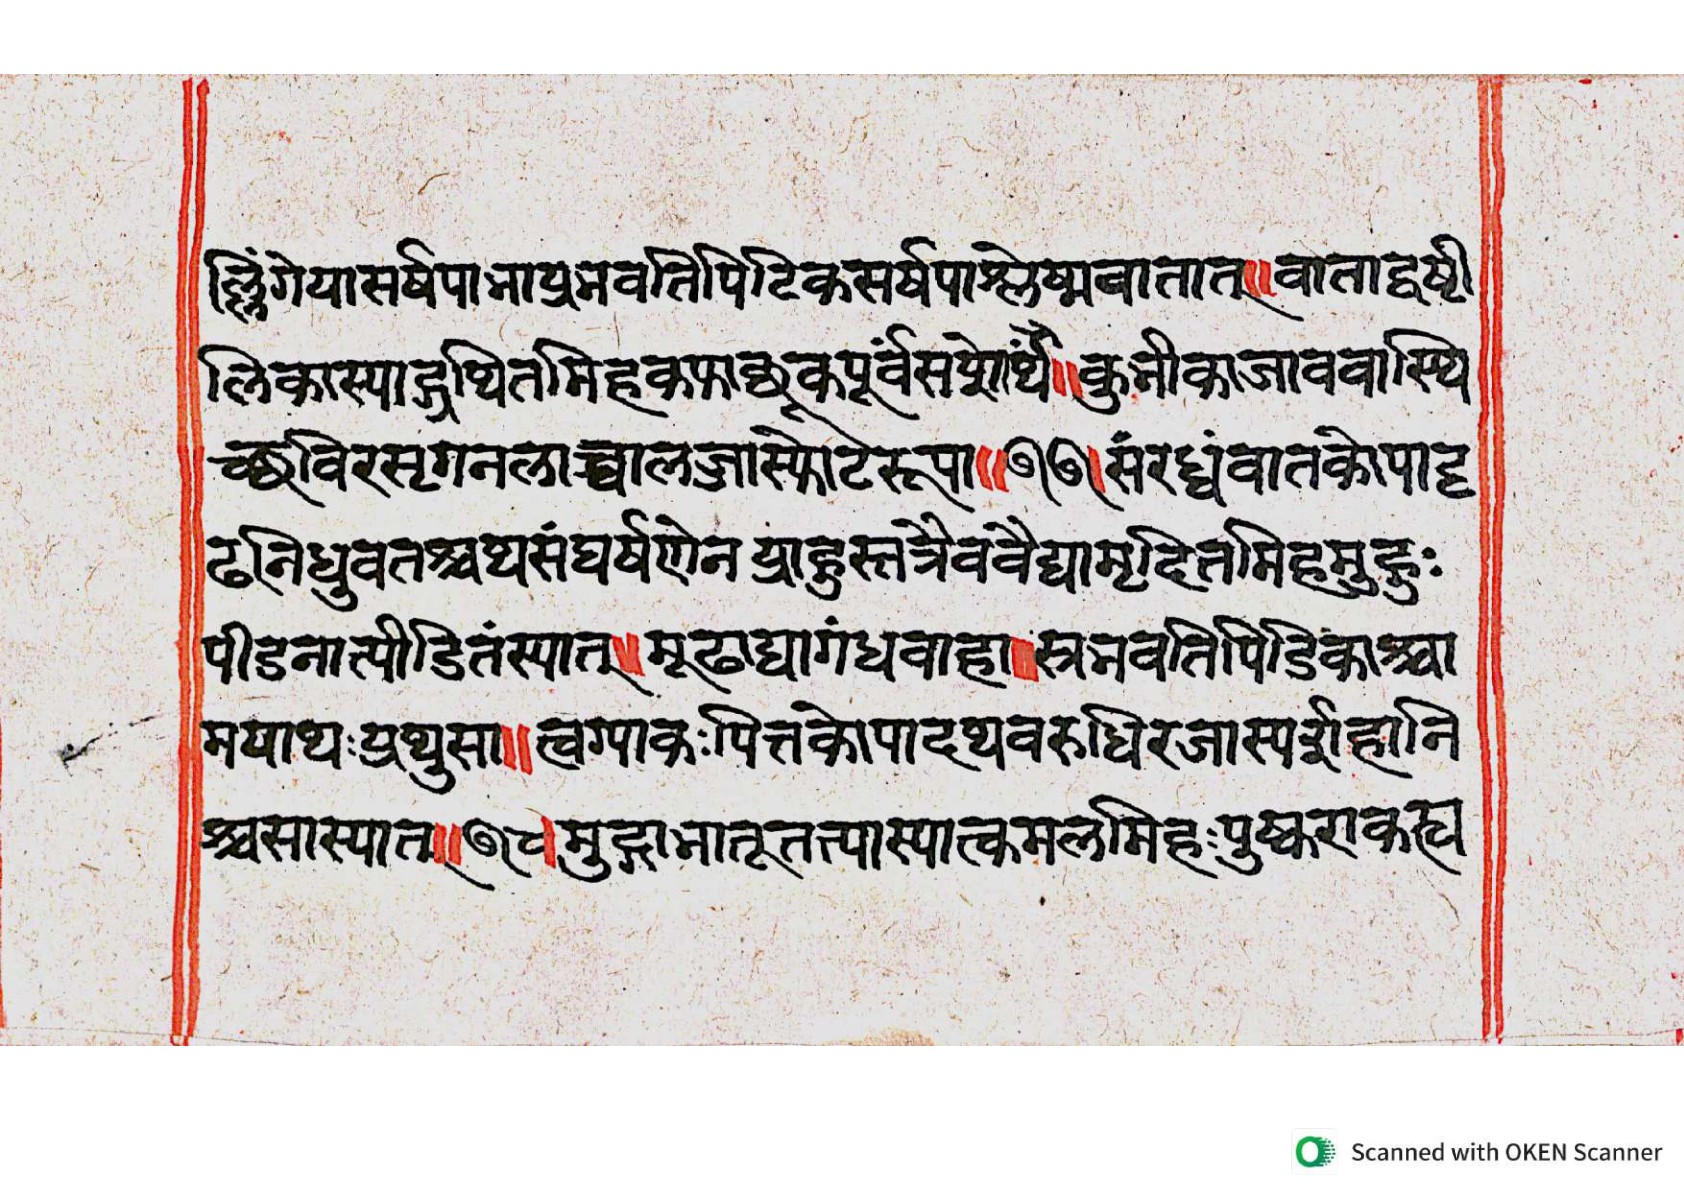 ल्लिंगेयासर्षपाभाप्रभवतिपिटिकसर्षपाश्लेष्मवातात्॥वाताद्वष्ठी
लिकास्याद्ग्रथितमिहकफाच्छूकपूर्वसप्रोर्थै॥कुभीकाजाववास्थि
च्छविरसृगनलाच्चालजास्फोटरूपा॥७७।संरब्धंवातकोपादृ
ढनिधुवतश्चथसंघर्षणेन प्राहुस्तत्रैववैद्यामृदितमिहमुहुः
पीडनात्पीडितंस्यात्॥मूढाद्यागंधवाहा॥स्त्रभवतिपिडिकाश्चा
मयाथःप्रथुसा॥त्वग्पाकःपित्तकोपादथवरुधिरजास्पर्शहानि
श्चसास्यात्॥७८।मुद्गाभातूतत्त्पास्यात्कमलमिहःपुष्कराकह्य
Scanned with OKEN Scanner